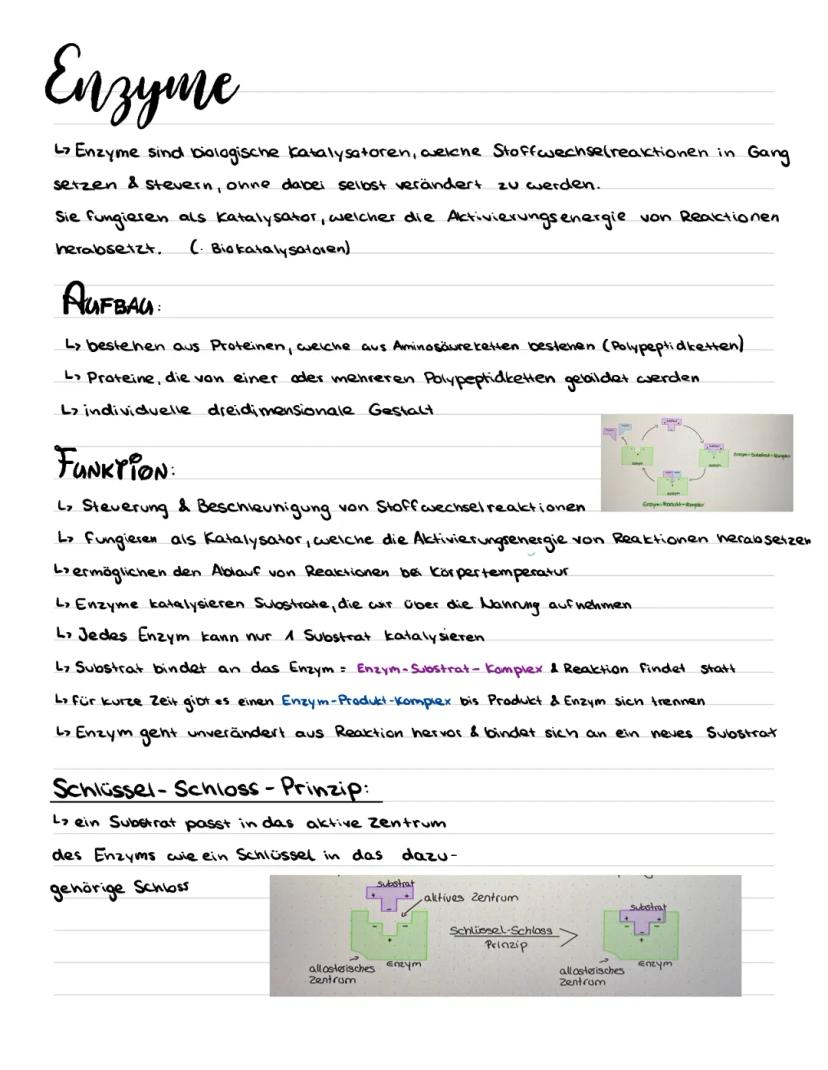 Enzyme
↳ Enzyme sind biologische Katalysatoren, welche Stoffwechselreaktionen in Gang
setzen & steuern, ohne dabei selbst verändert zu werden.
Sie fungieren als Katalysator, welcher die Aktivierungsenergie von Reaktionen
herabsetzt. (· Biokatalysatoren)
AUFBAU:
↳ bestehen aus Proteinen, welche aus Aminosäureketten bestehen (Polypeptidketten)
↳ Proteine, die von einer oder mehreren Polypeptidketten gebildet werden
↳ individuelle dreidimensionale Gestalt
FUNKTION:
Enzym-Substrat-Komplex
Enzym-Produkt-Komplex
↳ Steuerung & Beschleunigung von Stoffwechselreaktionen
↳ fungieren als Katalysator, welche die Aktivierungsenergie von Reaktionen herabsetzen
↳ ermöglichen den Ablauf von Reaktionen bei Körpertemperatur
↳ Enzyme katalysieren Substrate, die wir über die Nahrung aufnehmen
↳ Jedes Enzym kann nur 1 Substrat katalysieren
↳ Substrat bindet an das Enzym = Enzym-Substrat-Komplex & Reaktion findet statt
↳ für kurze Zeit gibt es einen Enzym-Produkt-Komplex bis Produkt & Enzym sich trennen
↳ Enzym geht unverändert aus Reaktion hervor & bindet sich an ein neues Substrat
Schlüssel-Schloss-Prinzip:
↳ ein Substrat passt in das aktive Zentrum
des Enzyms wie ein Schlüssel in das dazu-
gehörige Schloss
Substrat
aktives Zentrum
Enzym
allosterisches
Zentrum
Schlüssel-Schloss
Prinzip
Substrat
Enzym
allosterisches
Zentrum